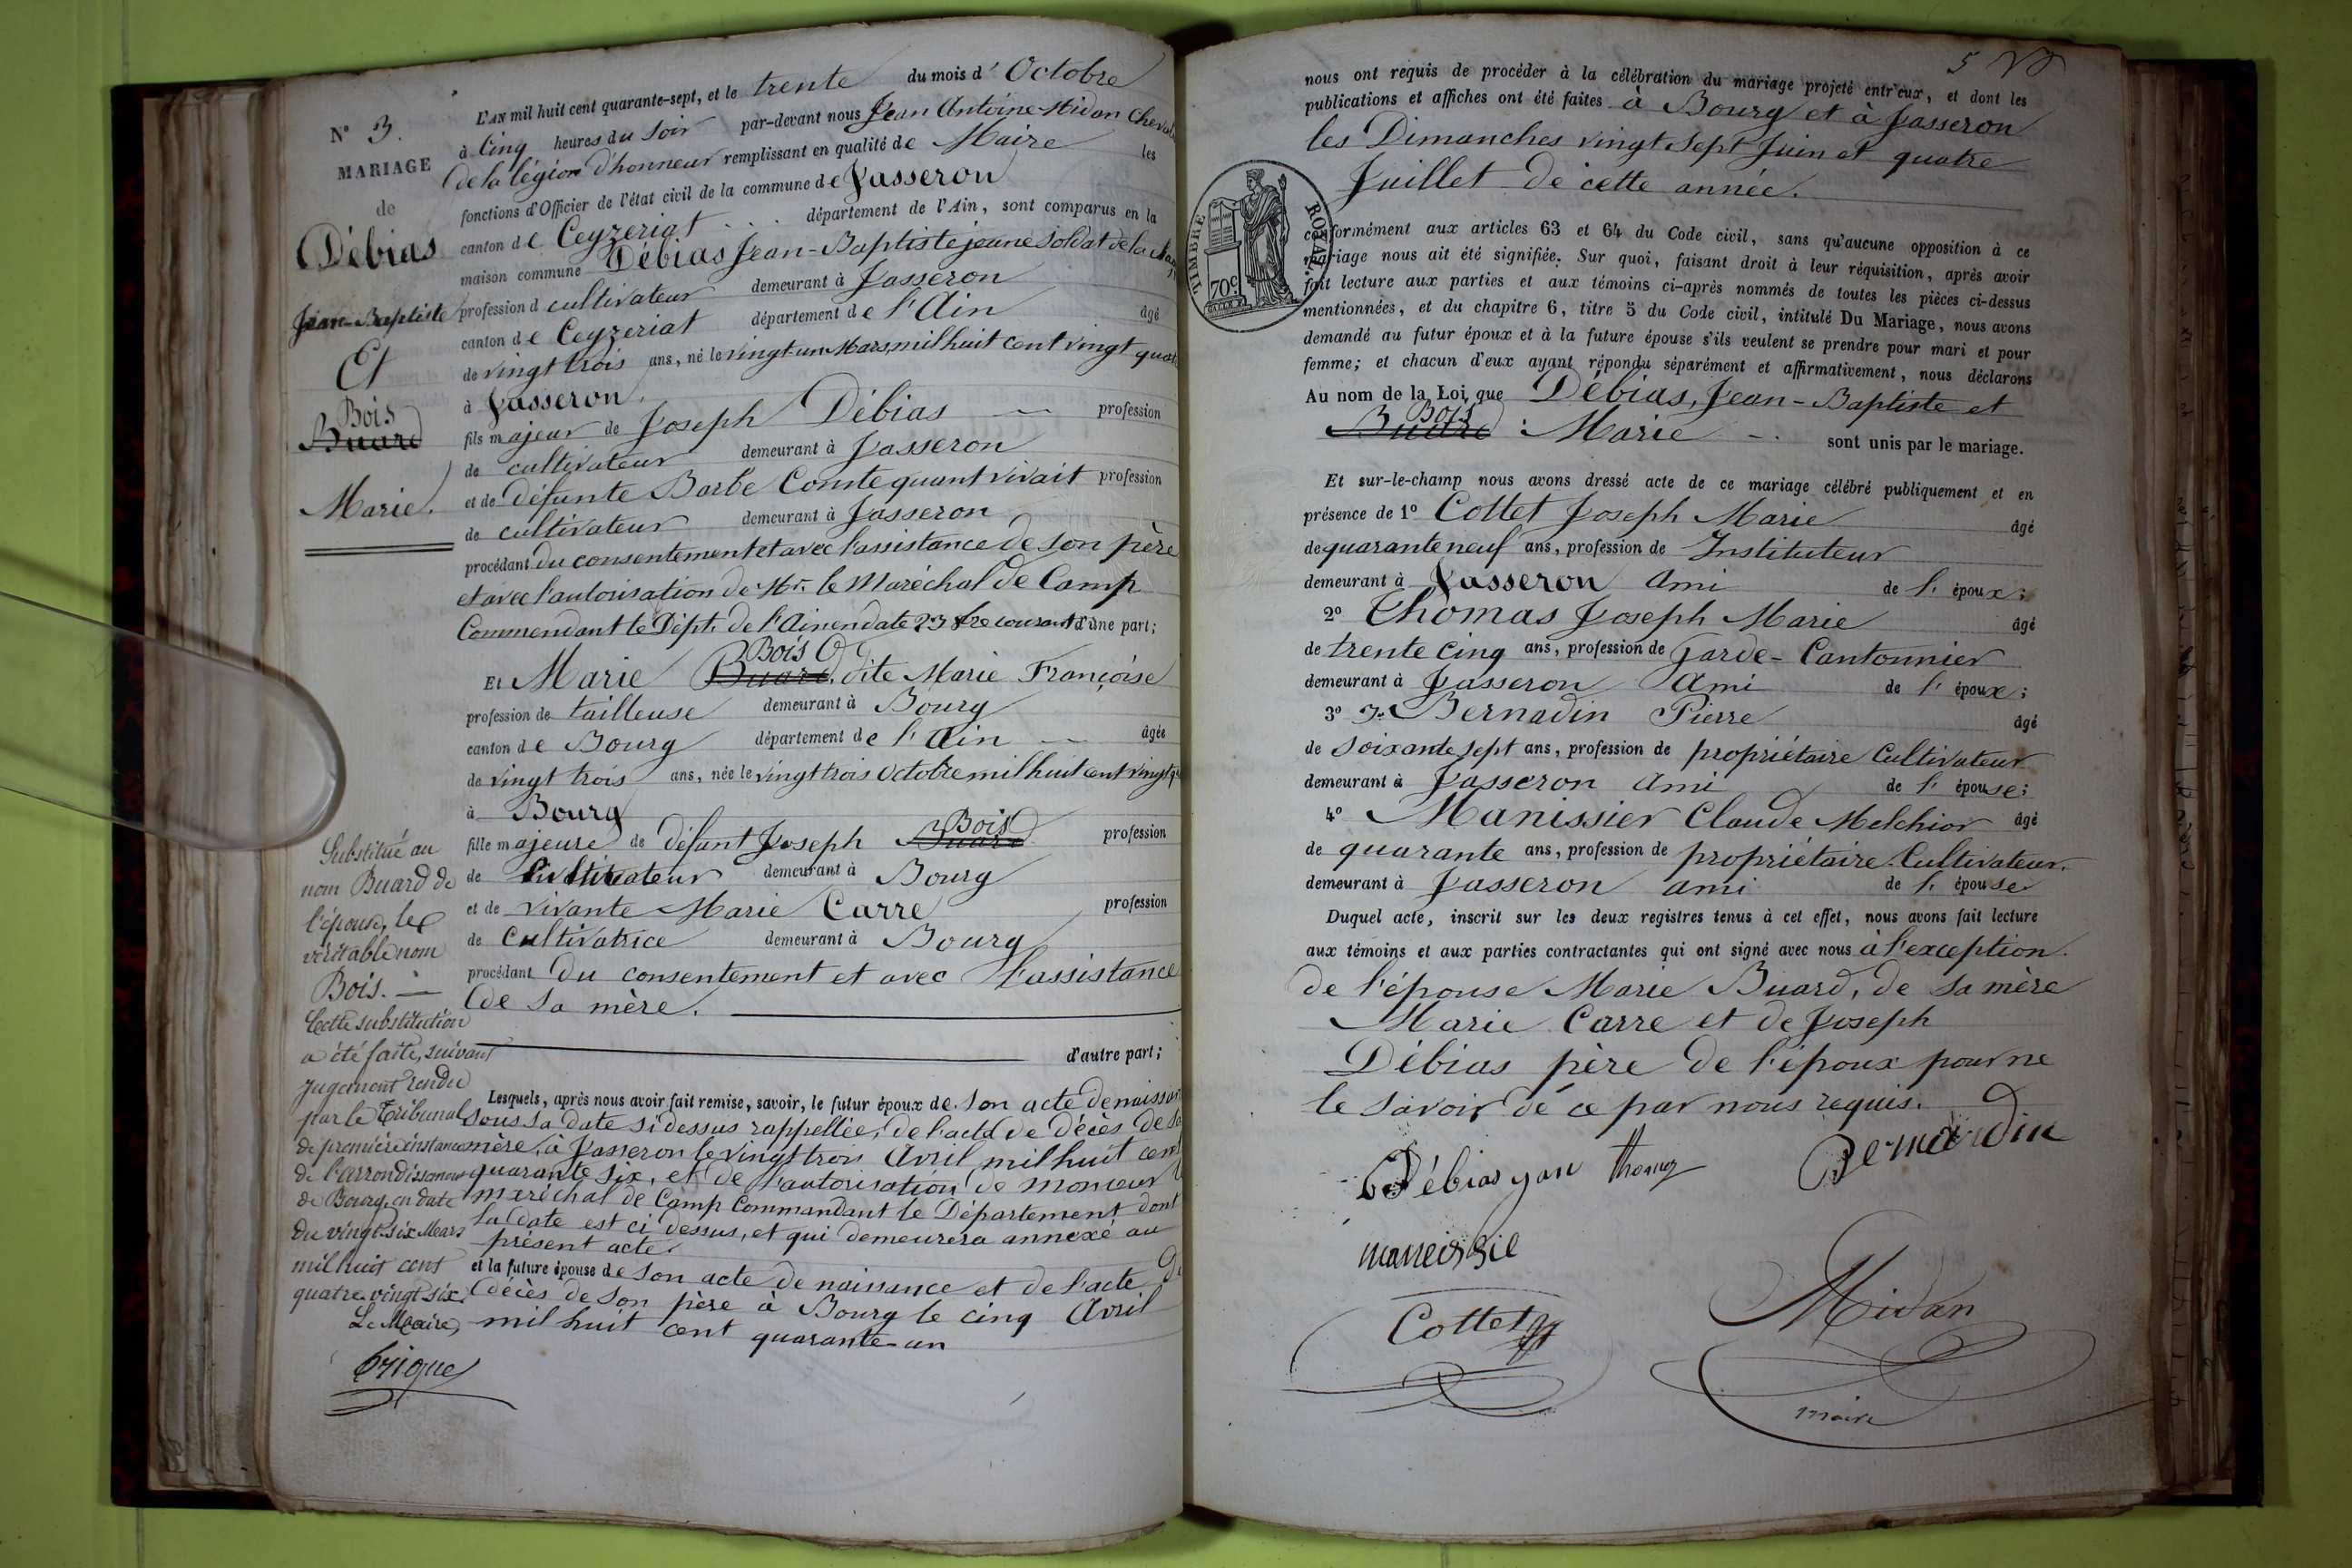 N° 3.
MARIAGE
de
Débias
Jean-Baptiste
Et
Bois
Buard
Marie.
Substitué au
nom Buard de
l'épouse, le
véritable nom
Bois. —
Cette substitution
a été faite, suivant
jugement rendu
par le Tribunal
de première instance
de l'arrondissement
de Bourg, en date
du vingt-six Mars
mil huit cent
quatre-vingt six.
Le Maire,
L'AN mil huit cent quarante-sept, et le trente du mois d'Octobre
à Cinq heures du soir par-devant nous Jean Antoine Midan
de la légion d'honneur remplissant en qualité de Maire les
fonctions d'Officier de l'état civil de la commune de Jasseron
canton de Ceyzeriat département de l'Ain, sont comparus en la
maison commune Débias Jean-Baptiste jeune Soldat de la
profession d cultivateur demeurant à Jasseron
canton de Ceyzeriat département de l'Ain âgé
de vingt trois ans, né le vingt un Mars mil huit cent vingt
à Jasseron
fils majeur de Joseph Débias — profession
de cultivateur demeurant à Jasseron
et de défunte Barbe Comte quant vivait profession
de cultivateur demeurant à Jasseron
procédant du consentement et avec l'assistance de son père
et avec l'autorisation de Mr. le Maréchal de Camp
Commendant le Dépt. de l'Ain en date 23 courant d'une part;
Bois
Et Marie Buard, dite Marie Françoise
profession de tailleuse demeurant à Bourg
canton de Bourg département de l'Ain — âgée
de vingt trois ans, née le vingt trois octobre mil huit cent vingt
à Bourg
Bois
fille majeure de défunt Joseph Buard profession
de Cultivateur demeurant à Bourg
et de vivante Marie Carre profession
de Cultivatrice demeurant à Bourg
procédant du consentement et avec l'assistance
de sa mère.
d'autre part;
Lesquels, après nous avoir fait remise, savoir, le futur époux de son acte de
sous sa date si dessus rappellée, de l'acte de décès de
mère, à Jasseron le vingt trois Avril mil huit cent
quarante six, et de l'autorisation de monsieur
maréchal de Camp Commandant le Département dont
la date est ci dessus, et qui demeurera annexé au
présent acte.
et la future épouse de son acte de naissance et de l'acte de
décès de son père à Bourg le cinq Avril
mil huit cent quarante-un
5
nous ont requis de procéder à la célébration du mariage projeté entr'eux, et dont les
publications et affiches ont été faites à Bourg et à Jasseron
les Dimanches vingt sept Juin et quatre
Juillet de cette année.
TIMBRE ROYAL.
70c
conformément aux articles 63 et 64 du Code civil, sans qu'aucune opposition à ce
mariage nous ait été signifiée. Sur quoi, faisant droit à leur réquisition, après avoir
fait lecture aux parties et aux témoins ci-après nommés de toutes les pièces ci-dessus
mentionnées, et du chapitre 6, titre 5 du Code civil, intitulé Du Mariage, nous avons
demandé au futur époux et à la future épouse s'ils veulent se prendre pour mari et pour
femme; et chacun d'eux ayant répondu séparément et affirmativement, nous déclarons
Au nom de la Loi, que Débias, Jean-Baptiste et
Bois
Buard Marie — sont unis par le mariage.
Et sur-le-champ nous avons dressé acte de ce mariage célébré publiquement et en
présence de 1° Cottet Joseph Marie âgé
de quarante neuf ans, profession de Instituteur
demeurant à Jasseron ami de l'époux;
2° Thomas Joseph Marie âgé
de trente cinq ans, profession de Garde-Cantonnier
demeurant à Jasseron Ami de l'époux;
3° Bernadin Pierre âgé
de soixante sept ans, profession de propriétaire Cultivateur
demeurant à Jasseron ami de l'épouse;
4° Manissier Claude Melchior âgé
de quarante ans, profession de propriétaire Cultivateur.
demeurant à Jasseron ami de l'épouse
Duquel acte, inscrit sur les deux registres tenus à cet effet, nous avons fait lecture
aux témoins et aux parties contractantes qui ont signé avec nous à l'exception
de l'épouse Marie Buard, de sa mère
Marie Carre et de Joseph
Débias père de l'époux pour ne
le savoir de ce par nous requis.
Débias Thomas Bernardin
Cottet Midan
maire